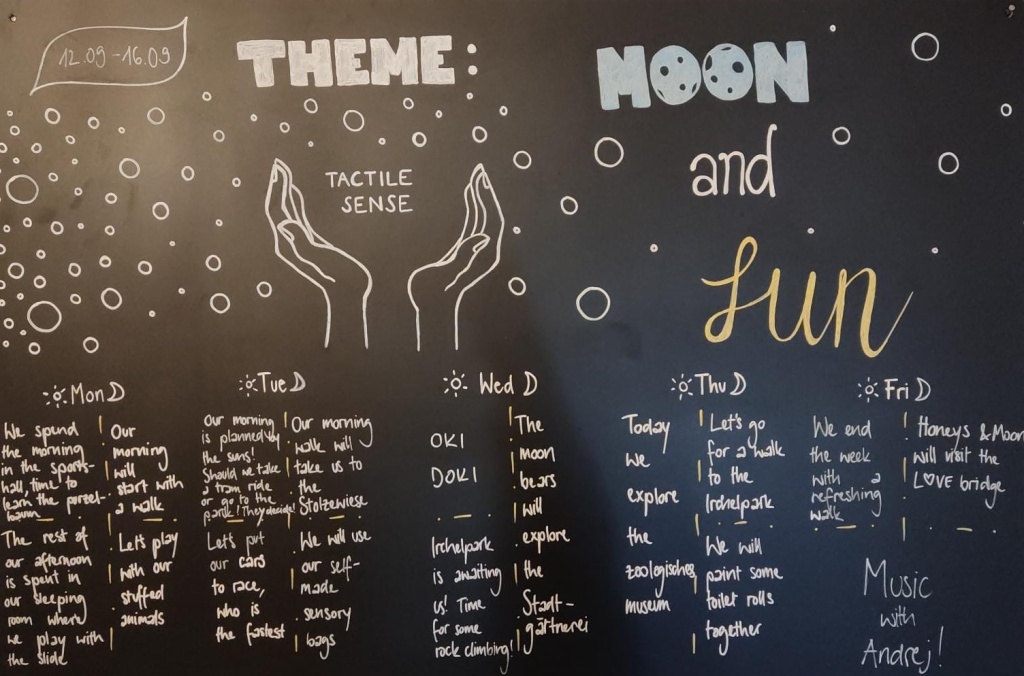 12.09 - 16.09
THEME:
MOON
and
sun
TACTILE
SENSE
Mon
We spend
the morning
in the sports-
hall, time to
learn the purzel-
baum
The rest of
our afternoon
is spent in
our sleeping
room where
we play with
the slide
Our
morning
will
start with
a walk
Let's play
with our
stuffed
animals
Tue
Our morning
is planned by
the suns!
Should we take
a tram ride
or go to the
park? They decide!
Let's put
our cars
to race,
who is
the fastest
Our morning
walk will
take us to
the
Stolzewiese
We will use
our self-
made
sensory
bags
Wed
OKI
DOKI
Irchelpark
is awaiting
us! Time
for some
rock climbing!
The
moon
bears
will
explore
the
Stadt-
gärtnerei
Thu
Today
we
explore
the
zoologisches
museum
Let's go
for a walk
to the
Irchelpark
We will
paint some
toilet rolls
together
Fri
We end
the week
with a
refreshing
walk
Honeys & Moon
will visit the
LOVE bridge
Music
with
Andrej!